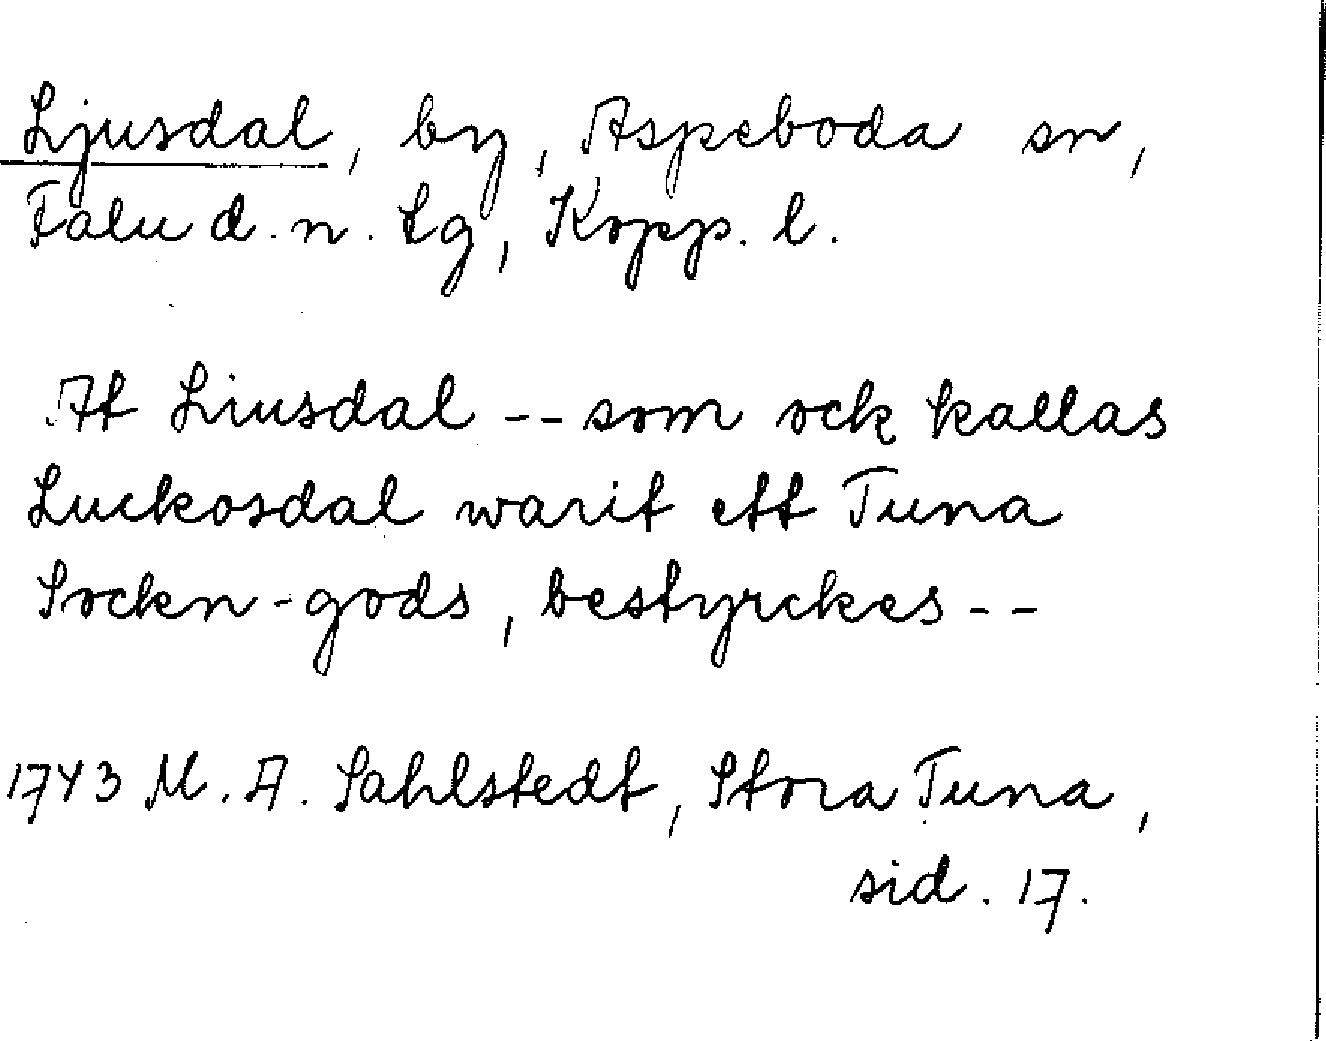 Ljusdal, by, Aspeboda sn,
Falu d. n. tg, Kopp. l.
At Liusdal -- som ock kallas
Luckosdal warit ett Tuna
Sockn-gods, bestyrckes --
1743 M. A. Sahlstedt, Stora Tuna,
sid. 17.